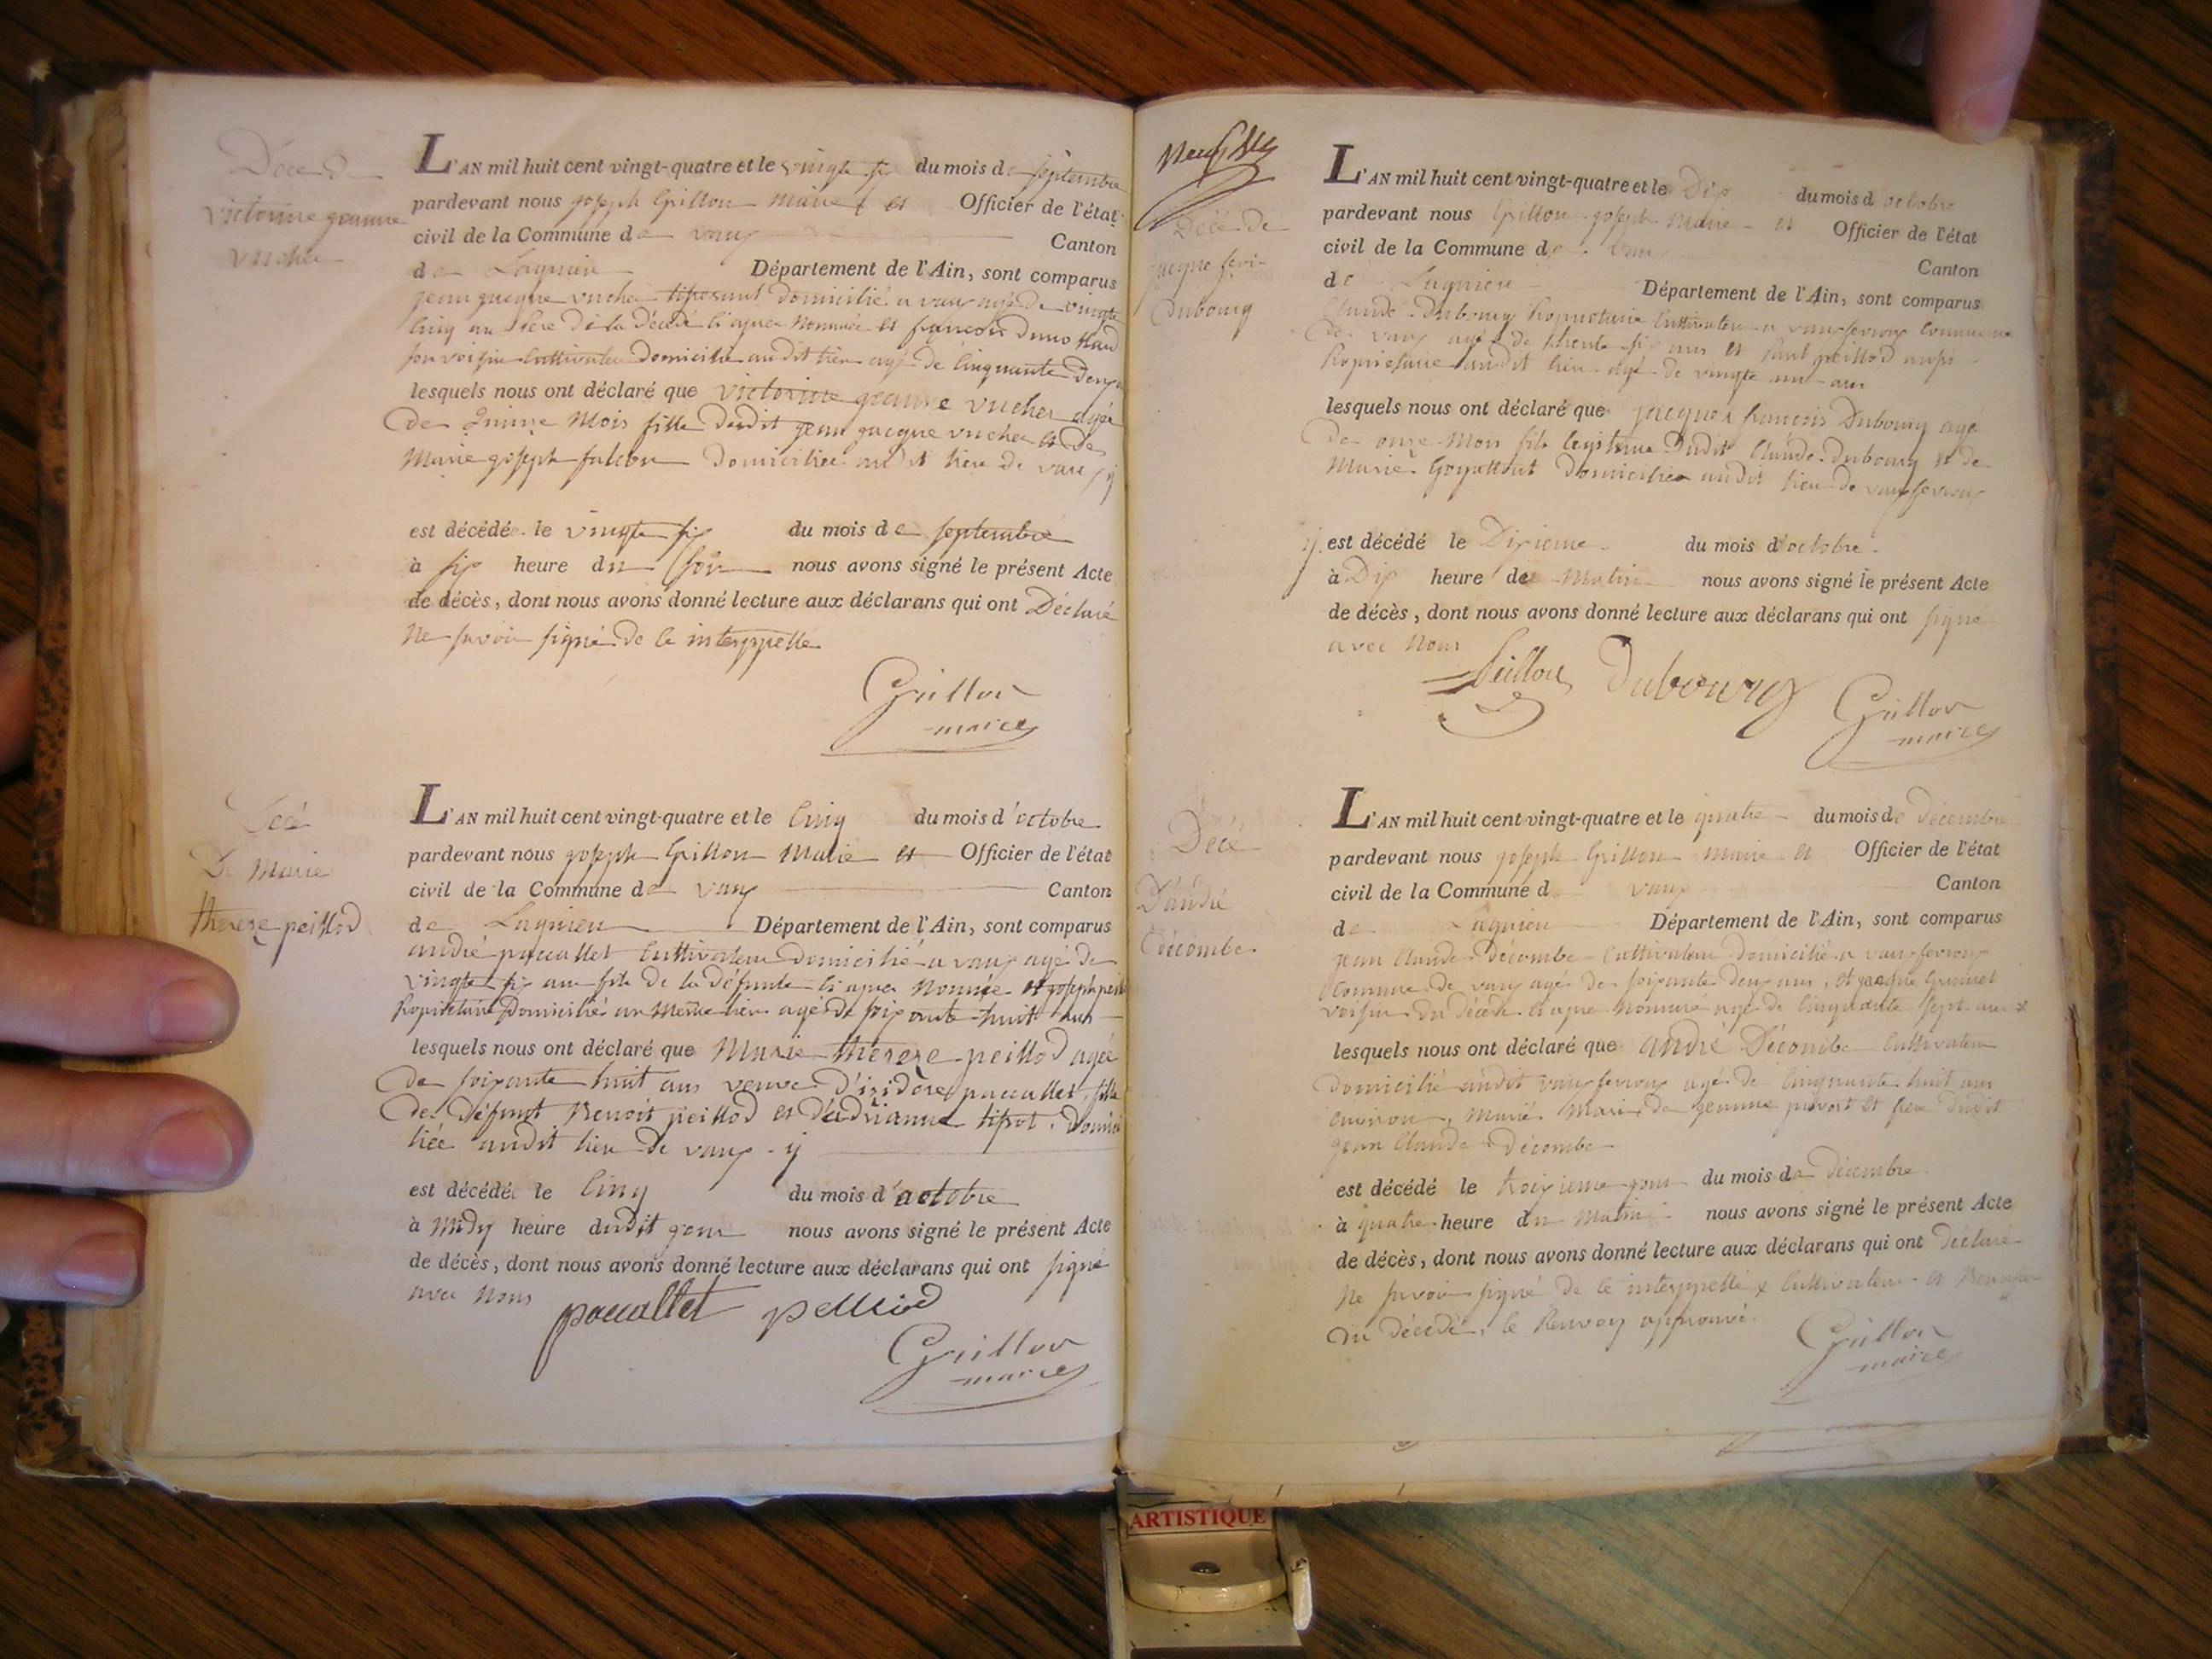 Décé de
victorine jeanne
vucher
L'AN mil huit cent vingt-quatre et le vingte six du mois de septembre
pardevant nous joseph Grillon maire et Officier de l'état
civil de la Commune de vaux Canton
de Lagnieu Département de l'Ain, sont comparus
jean jacque vucher tisserant domicilié a vaux agé de vingte
cinq an pere de la décédé ci apres nommée et françois
son voisin cultivateur domicilié audit lieu agé de cinquante deux
lesquels nous ont déclaré que victorine jeanne vucher agée
de quinze mois fille dudit jean jacque vucher et de
marie joseph falcon domiciliée audit lieu de vaux y
est décédée le vingte six du mois de septembre
à six heure du soir nous avons signé le présent Acte
de décès, dont nous avons donné lecture aux déclarans qui ont Déclaré
ne savoir signé de ce interppellé
Grillon
maire
Décé
De marie
therese peillod
L'AN mil huit cent vingt-quatre et le cinq du mois d'octobre
pardevant nous joseph Grillon maire et Officier de l'état
civil de la Commune de vaux Canton
de Lagnieu Département de l'Ain, sont comparus
andré paccallet cultivateur domicilié a vaux agé de
vingte six an fils de la défunte ci apres nommée et joseph
Propriétaire domicilié au meme lieu agé de soixante huit ans
lesquels nous ont déclaré que marie therese peillod agée
de soixante huit ans veuve d'izidore paccallet, fille
de défunt Benoit peillod et d'adrianne tissot, domici
liée audit lieu de vaux y
est décédée le cinq du mois d'octobre
à midy heure dudit jour nous avons signé le présent Acte
de décès, dont nous avons donné lecture aux déclarans qui ont signé
avec nous
paccallet pelliod
Grillon
maire
Décé de
jacque
Dubourg
L'AN mil huit cent vingt-quatre et le Dix du mois d'octobre
pardevant nous Grillon joseph maire et Officier de l'état
civil de la Commune de vaux Canton
de Lagnieu Département de l'Ain, sont comparus
claude Dubourg Propriétaire cultivateur a vauxfevroux commune
de vaux agé de trente six ans et peillod aussi
Propriétaire audit lieu agé de vingte un ans
lesquels nous ont déclaré que jacques françois Dubourg agé
de onze mois fils legitime dudit claude Dubourg et de
marie domicilies audit lieu de vauxfevroux
y est décédé le Dixieme du mois d'octobre
à Dix heure du matin nous avons signé le présent Acte
de décès, dont nous avons donné lecture aux déclarans qui ont signé
avec nous
Peillod Dubourg Grillon
maire
Décé
D'andré
Décombe
L'AN mil huit cent vingt-quatre et le quatre du mois de Décembre
pardevant nous joseph Grillon maire et Officier de l'état
civil de la Commune d vaux Canton
de Lagnieu Département de l'Ain, sont comparus
jean claude Décombe cultivateur domicilié a vauxfevroux
commune de vaux agé de soixante deux ans, et jacque
voisin du décédé ci apres nommé agé de cinquante sept ans x
lesquels nous ont déclaré que andré Décombe cultivateur
domicilié audit vauxfevroux agé de cinquante huit ans
environ, marié mari de jeanne provost et frere dudit
jean claude Décombe
est décédé le troisieme jour du mois de Décembre
à quatre heure du matin nous avons signé le présent Acte
de décès, dont nous avons donné lecture aux déclarans qui ont Déclaré
ne savoir signé de ce interppellé x cultivateur et
du décédé, le Renvoy approuvé
Grillon
maire
ARTISTIQUE